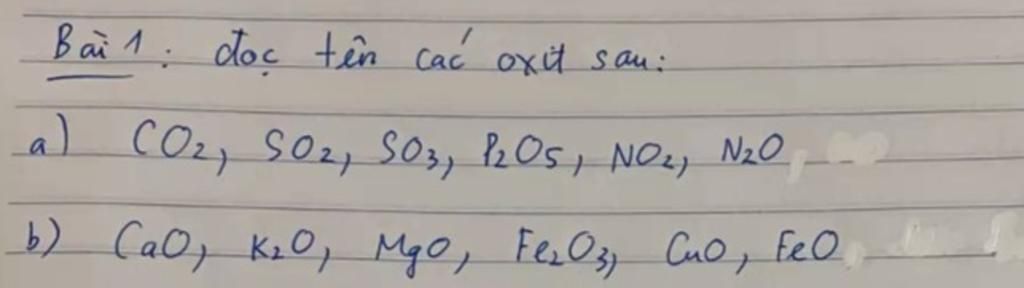 Bài 1: đọc tên các oxit sau:
a) CO2, SO2, SO3, P2O5, NO2, N2O,
b) CaO, K2O, MgO, Fe2O3, CuO, FeO,